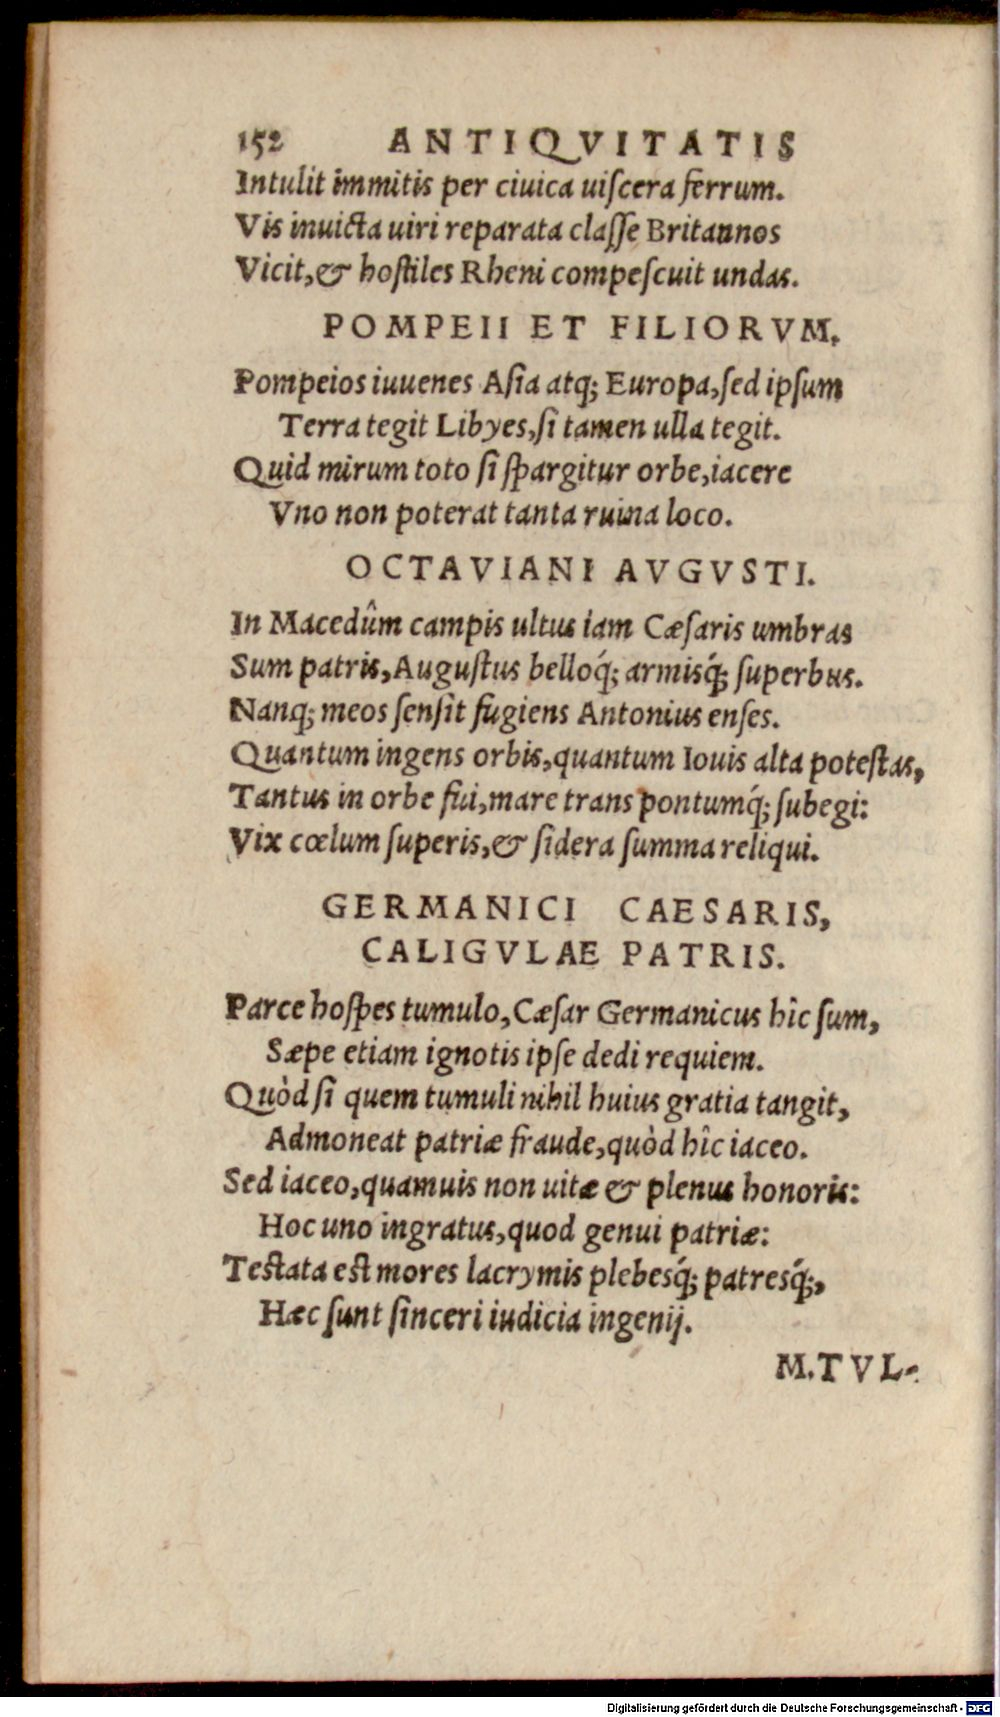 152 ANTIQVITATIS
Intulit immitis per ciuica uiſcera ferrum.
Vis inuicta uiri reparata claſſe Britannos
Vicit,& hoſtiles Rheni compeſcuit undas.
POMPEII ET FILIORVM.
Pompeios iuuenes Aſia atq; Europa,ſed ipſum
Terra tegit Libyes,ſi tamen ulla tegit.
Quid mirum toto ſi ſpargitur orbe,iacere
Vno non poterat tanta ruina loco.
OCTAVIANI AVGVSTI.
In Macedûm campis ultus iam Cæſaris umbras
Sum patris,Auguſtus belloq́; armisq́; ſuperbus.
Nanq; meos ſenſit fugiens Antonius enſes.
Quantum ingens orbis,quantum Iouis alta poteſtas,
Tantus in orbe fui,mare trans pontumq́; ſubegi:
Vix cœlum ſuperis,& ſidera ſumma reliqui.
GERMANICI CAESARIS,
CALIGVLAE PATRIS.
Parce hoſpes tumulo,Cæſar Germanicus hîc ſum,
Sæpe etiam ignotis ipſe dedi requiem.
Quòd ſi quem tumuli nihil huius gratia tangit,
Admoneat patriæ fraude,quòd hîc iaceo.
Sed iaceo,quamuis non uitæ & plenus honoris:
Hoc uno ingratus,quod genui patriæ:
Teſtata eſt mores lacrymis plebesq́; patresq́;,
Hæc ſunt ſinceri iudicia ingenij.
M.TVL-
Digitalisierung gefördert durch die Deutsche Forschungsgemeinschaft - DFG